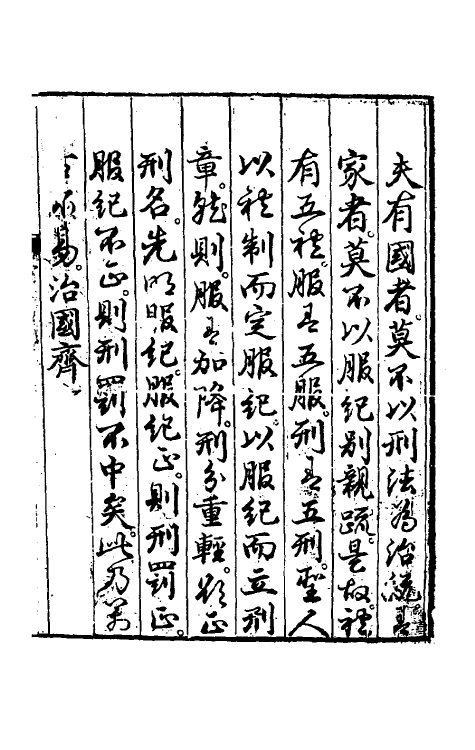 夫有國者。莫不以刑法為治統。有
家者。莫不以服紀別親疏。是故禮
有五禮。服有五服。刑有五刑。聖人
以禮制而定服紀。以服紀而立刑
章。然則服有加降。刑分重輕。欲正
刑名。先明服紀。服紀正。則刑罰正。
服紀不正。則刑罰不中矣。此乃萬
古不易。治國齊